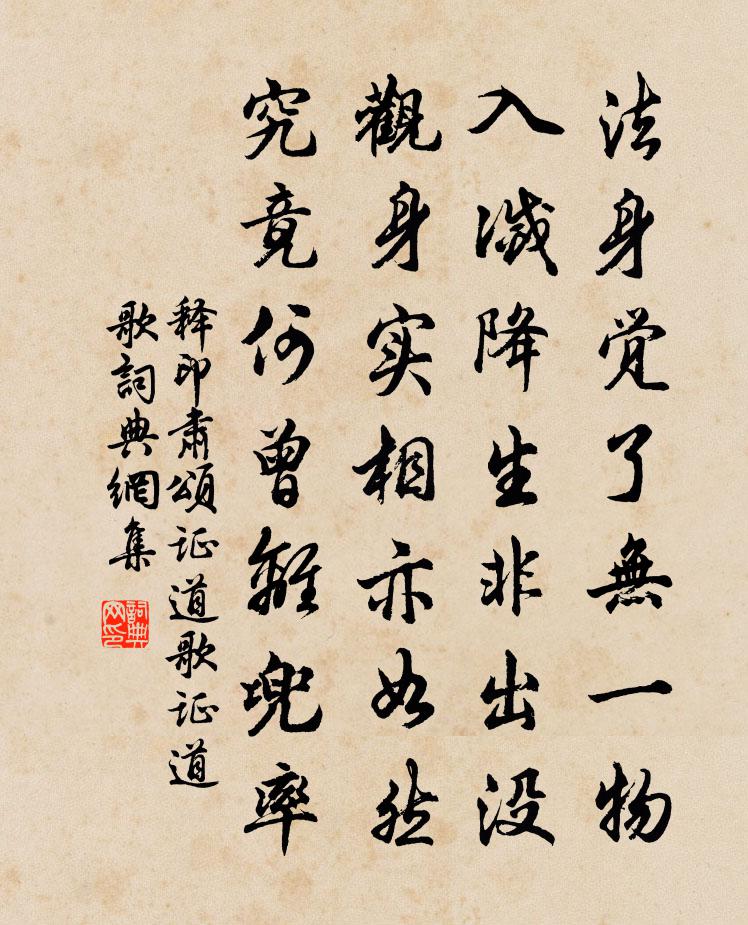 法身觉了無一物
入滅降生非出没
觀身实相亦如然
究竟何曾離兜率
释印肃颂证道歌证道
歌詞典網集
詞典网印